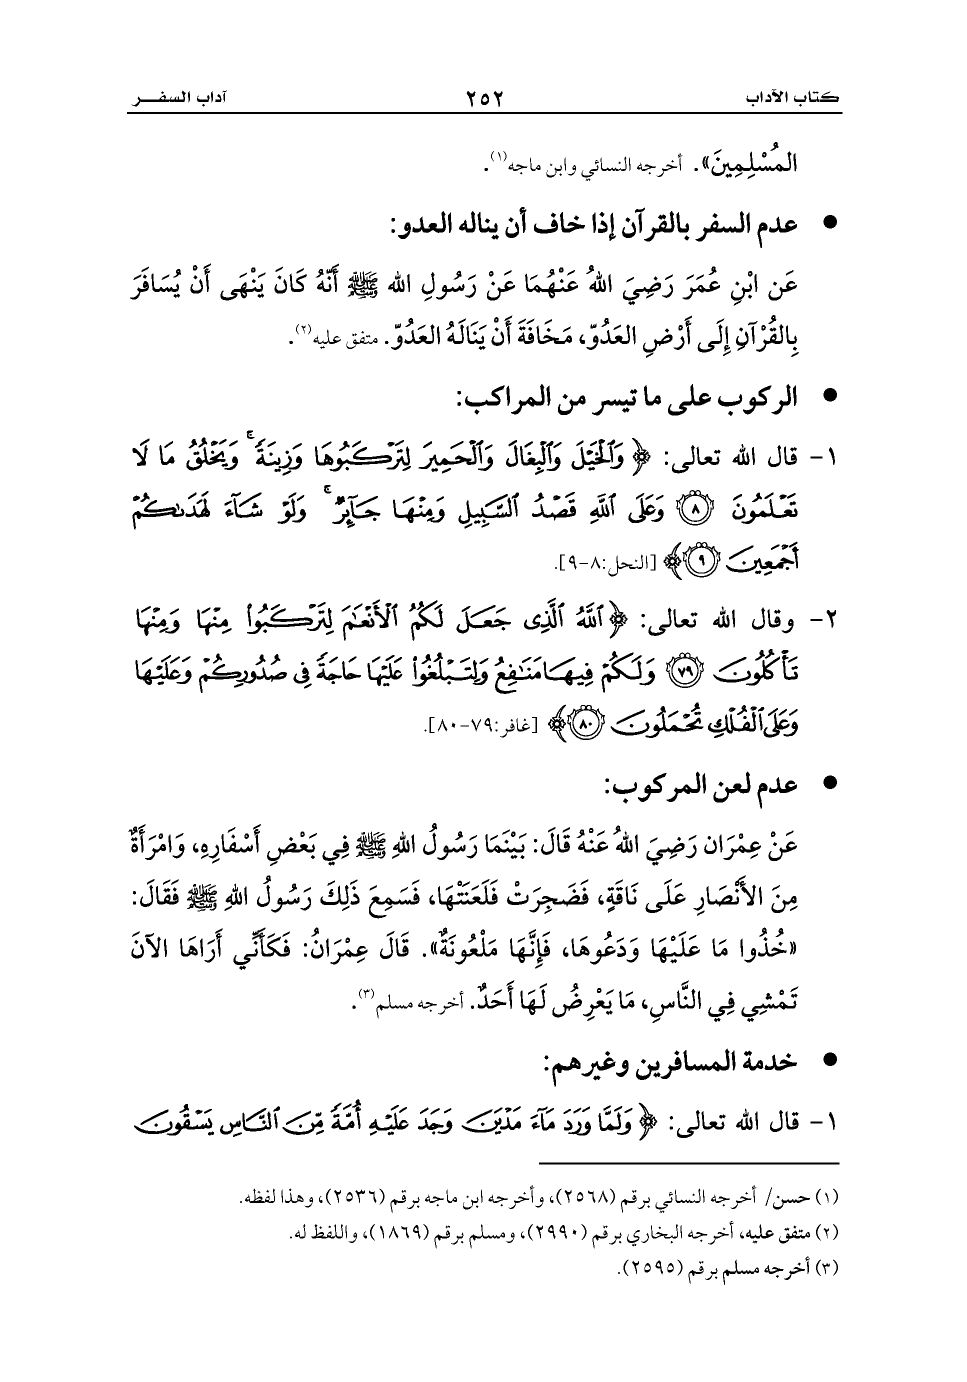 كتاب الآداب ٢٥٢ آداب السفر
المُسْلِمِينَ». أخرجه النسائي وابن ماجه(١).
• عدم السفر بالقرآن إذا خاف أن يناله العدو:
عَن ابْنِ عُمَرَ رَضِيَ اللهُ عَنْهُمَا عَنْ رَسُولِ الله ﷺ أَنَّهُ كَانَ يَنْهَى أَنْ يُسَافَرَ
بِالقُرْآنِ إِلَى أَرْضِ العَدُوّ، مَخَافَةَ أَنْ يَنَالَهُ العَدُوّ. متفق عليه(٢).
• الركوب على ما تيسر من المراكب:
١- قال الله تعالى: ﴿وَٱلْخَيْلَ وَٱلْبِغَالَ وَٱلْحَمِيرَ لِتَرْكَبُوهَا وَزِينَةً ۚ وَيَخْلُقُ مَا لَا
تَعْلَمُونَ ٨ وَعَلَى ٱللَّهِ قَصْدُ ٱلسَّبِيلِ وَمِنْهَا جَآئِرٌ ۚ وَلَوْ شَآءَ لَهَدَىٰكُمْ
أَجْمَعِينَ ٩﴾ [النحل:٨-٩].
٢- وقال الله تعالى: ﴿ٱللَّهُ ٱلَّذِى جَعَلَ لَكُمُ ٱلْأَنْعَٰمَ لِتَرْكَبُوا۟ مِنْهَا وَمِنْهَا
تَأْكُلُونَ ٧٩ وَلَكُمْ فِيهَا مَنَٰفِعُ وَلِتَبْلُغُوا۟ عَلَيْهَا حَاجَةً فِى صُدُورِكُمْ وَعَلَيْهَا
وَعَلَى ٱلْفُلْكِ تُحْمَلُونَ ٨٠﴾ [غافر:٧٩-٨٠].
• عدم لعن المركوب:
عَنْ عِمْرَان رَضِيَ اللهُ عَنْهُ قَالَ: بَيْنَمَا رَسُولُ اللهِ ﷺ فِي بَعْضِ أَسْفَارِهِ، وَامْرَأَةٌ
مِنَ الأَنْصَارِ عَلَى نَاقَةٍ، فَضَجِرَتْ فَلَعَنَتْهَا، فَسَمِعَ ذَلِكَ رَسُولُ اللهِ ﷺ فَقَالَ:
«خُذُوا مَا عَلَيْهَا وَدَعُوهَا، فَإِنَّهَا مَلْعُونَةٌ». قَالَ عِمْرَانُ: فَكَأَنِّي أَرَاهَا الآنَ
تَمْشِي فِي النَّاسِ، مَا يَعْرِضُ لَهَا أَحَدٌ. أخرجه مسلم(٣).
• خدمة المسافرين وغيرهم:
١- قال الله تعالى: ﴿وَلَمَّا وَرَدَ مَآءَ مَدْيَنَ وَجَدَ عَلَيْهِ أُمَّةً مِّنَ ٱلنَّاسِ يَسْقُونَ
(١) حسن/ أخرجه النسائي برقم (٢٥٦٨)، وأخرجه ابن ماجه برقم (٢٥٣٦)، وهذا لفظه.
(٢) متفق عليه، أخرجه البخاري برقم (٢٩٩٠)، ومسلم برقم (١٨٦٩)، واللفظ له.
(٣) أخرجه مسلم برقم (٢٥٩٥).